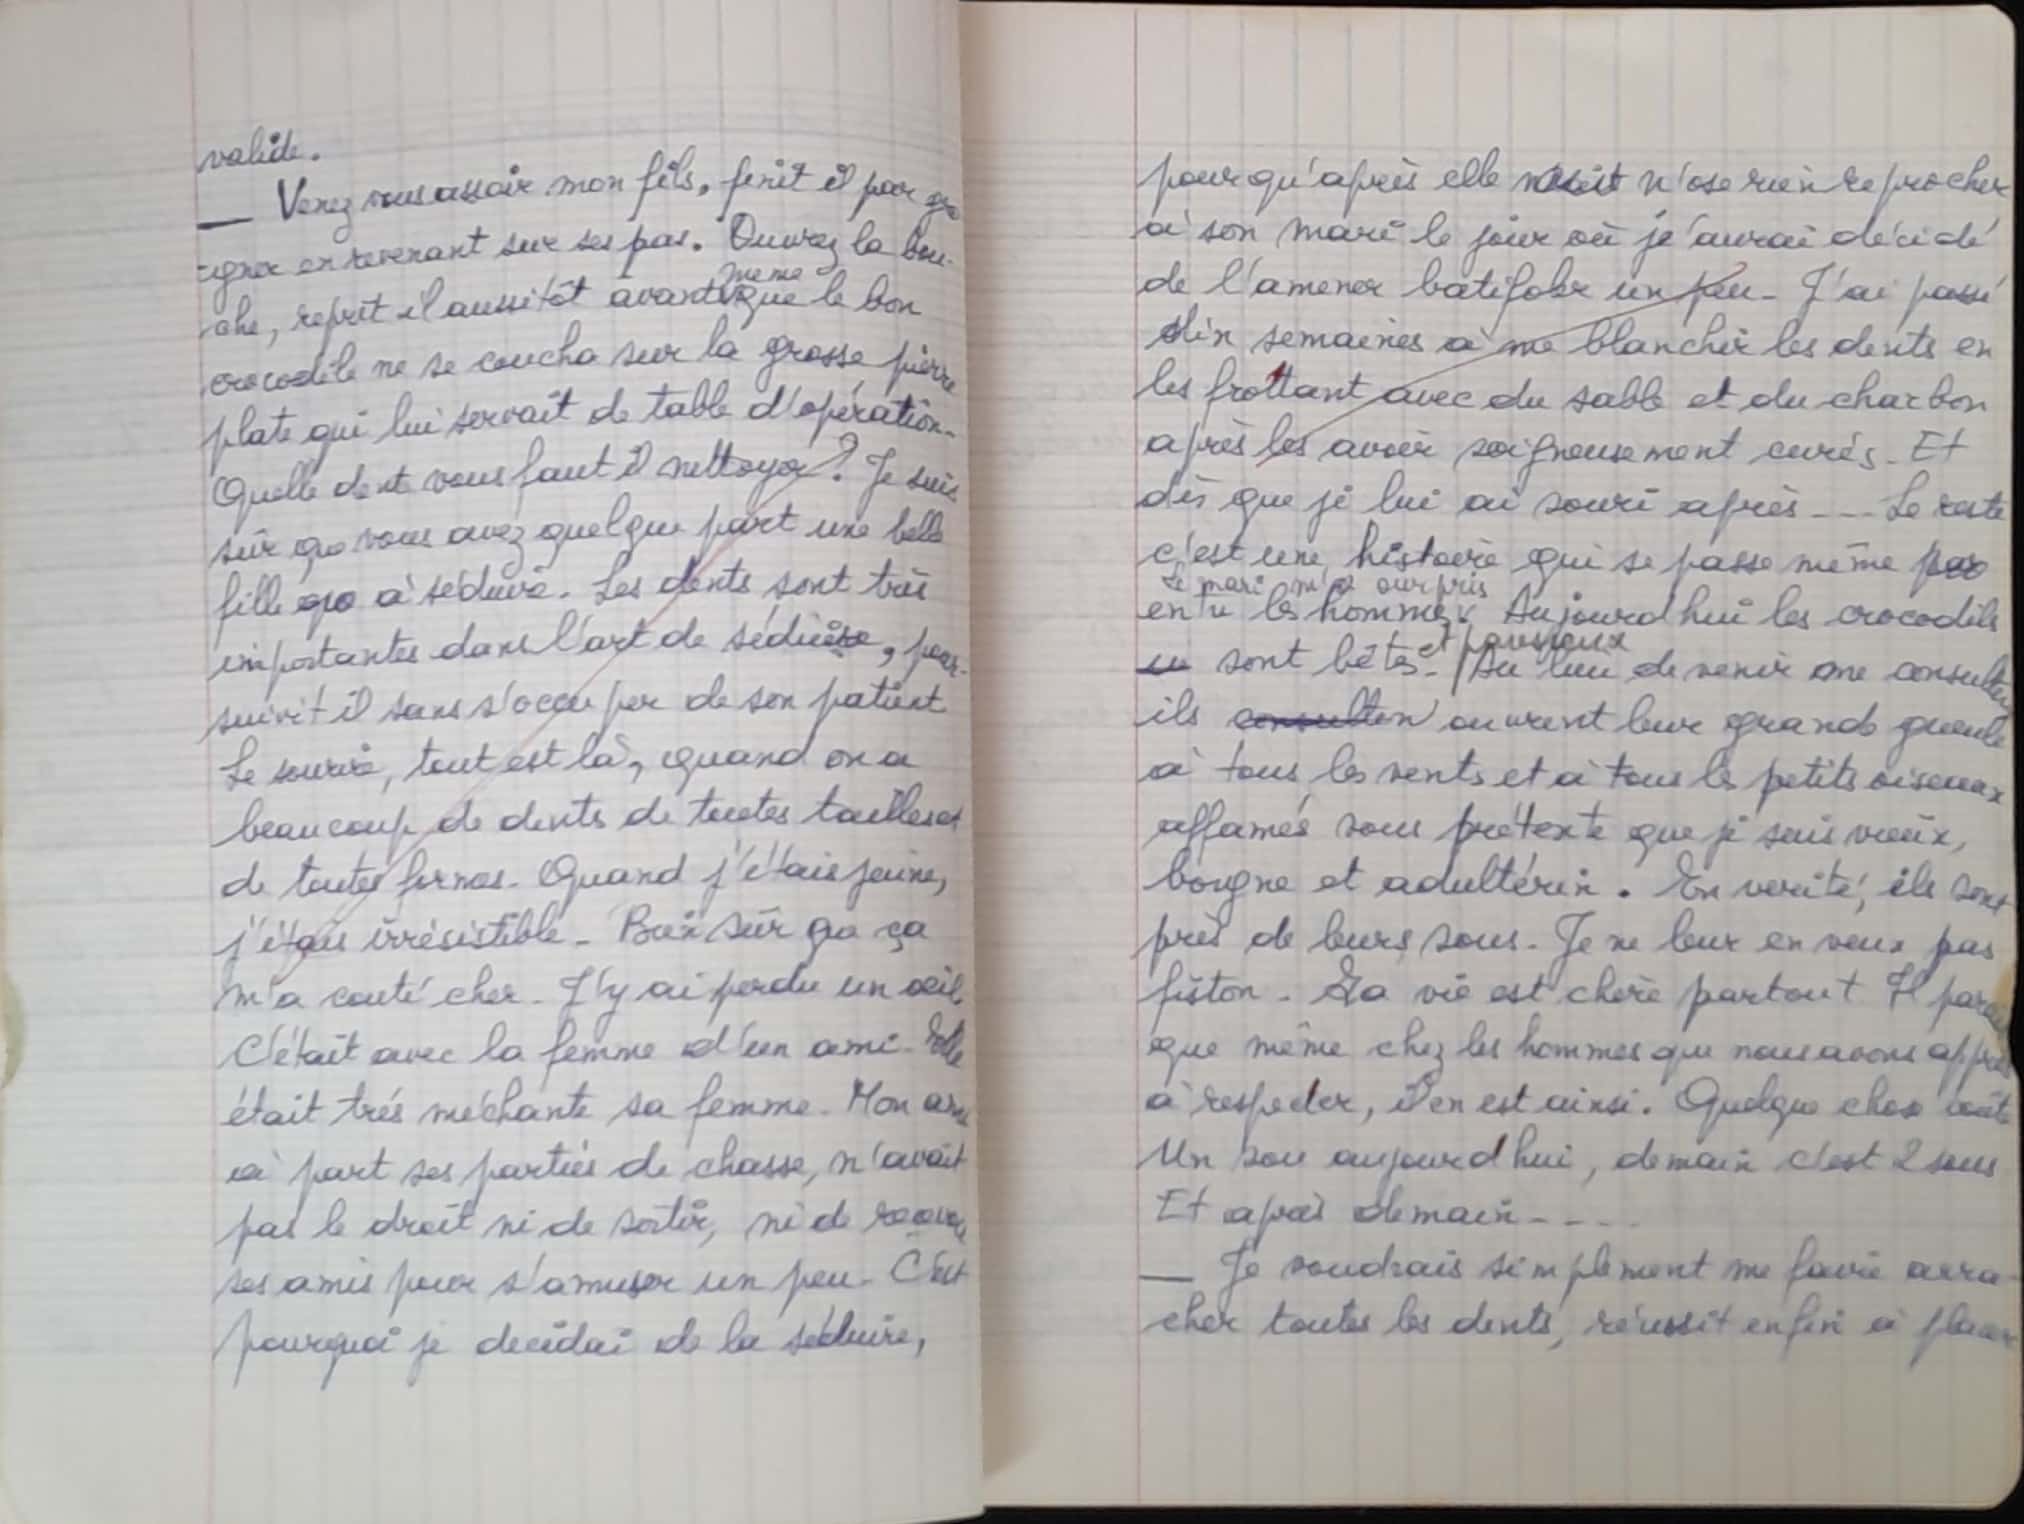 valide.
— Venez vous assoir mon fils, finit il par gro
-gner en revenant sur ses pas. Ouvrez la bou-
che, reprit il aussitôt avant même que le bon
crocodile ne se coucha sur la grosse pierre
plate qui lui servait de table d'opération.
Quelle dent vous faut il nettoyer ? Je suis
sûr que vous avez quelque part une belle
fille à séduire. Les dents sont très
importantes dans l'art de séduire, pour-
suivit il sans s'occuper de son patient
Le sourire, tout est là, quand on a
beaucoup de dents de toutes tailles et
de toutes formes. Quand j'étais jeune,
j'étais irrésistible. Bien sûr que ça
m'a couté cher. J'y ai perdu un oeil
C'était avec la femme d'un ami. Elle
était très méchante sa femme. Mon ami
à part ses parties de chasse, n'avait
pas le droit ni de sortir, ni de recevoir
ses amis pour s'amuser un peu. C'est
pourquoi je decidai de la séduire,
pour qu'après elle n'ose rien reprocher
à son mari le jour où j'aurai décidé
de l'amener batifoler un peu. J'ai passé
dix semaines à me blanchir les dents en
les frottant avec du sable et du charbon
après les avoir soigneusement curés. Et
dès que je lui ai souri après --- Le reste
c'est une histoire qui se passe même
entre les hommes. Le mari m'a surpris Aujourd'hui les crocodils
sont bêtes et pouvieux. Au lieu de venir me consulter
ils ouvrent leur grande gueule
à tous les vents et à tous les petits oiseaux
affamés sous prétexte que je suis vieux,
borgne et adultérin. En verité, ils sont
près de leurs sous. Je ne leur en veux pas
fiston. La vie est chère partout Il parait
que même chez les hommes que nous avons appris
à respecter, il en est ainsi. Quelque chose coûte
Un sou aujourd'hui, demain c'est 2 sous
Et après demain - - - -
— Je voudrais simplement me faire arra-
cher toutes les dents, réussit enfin à placer